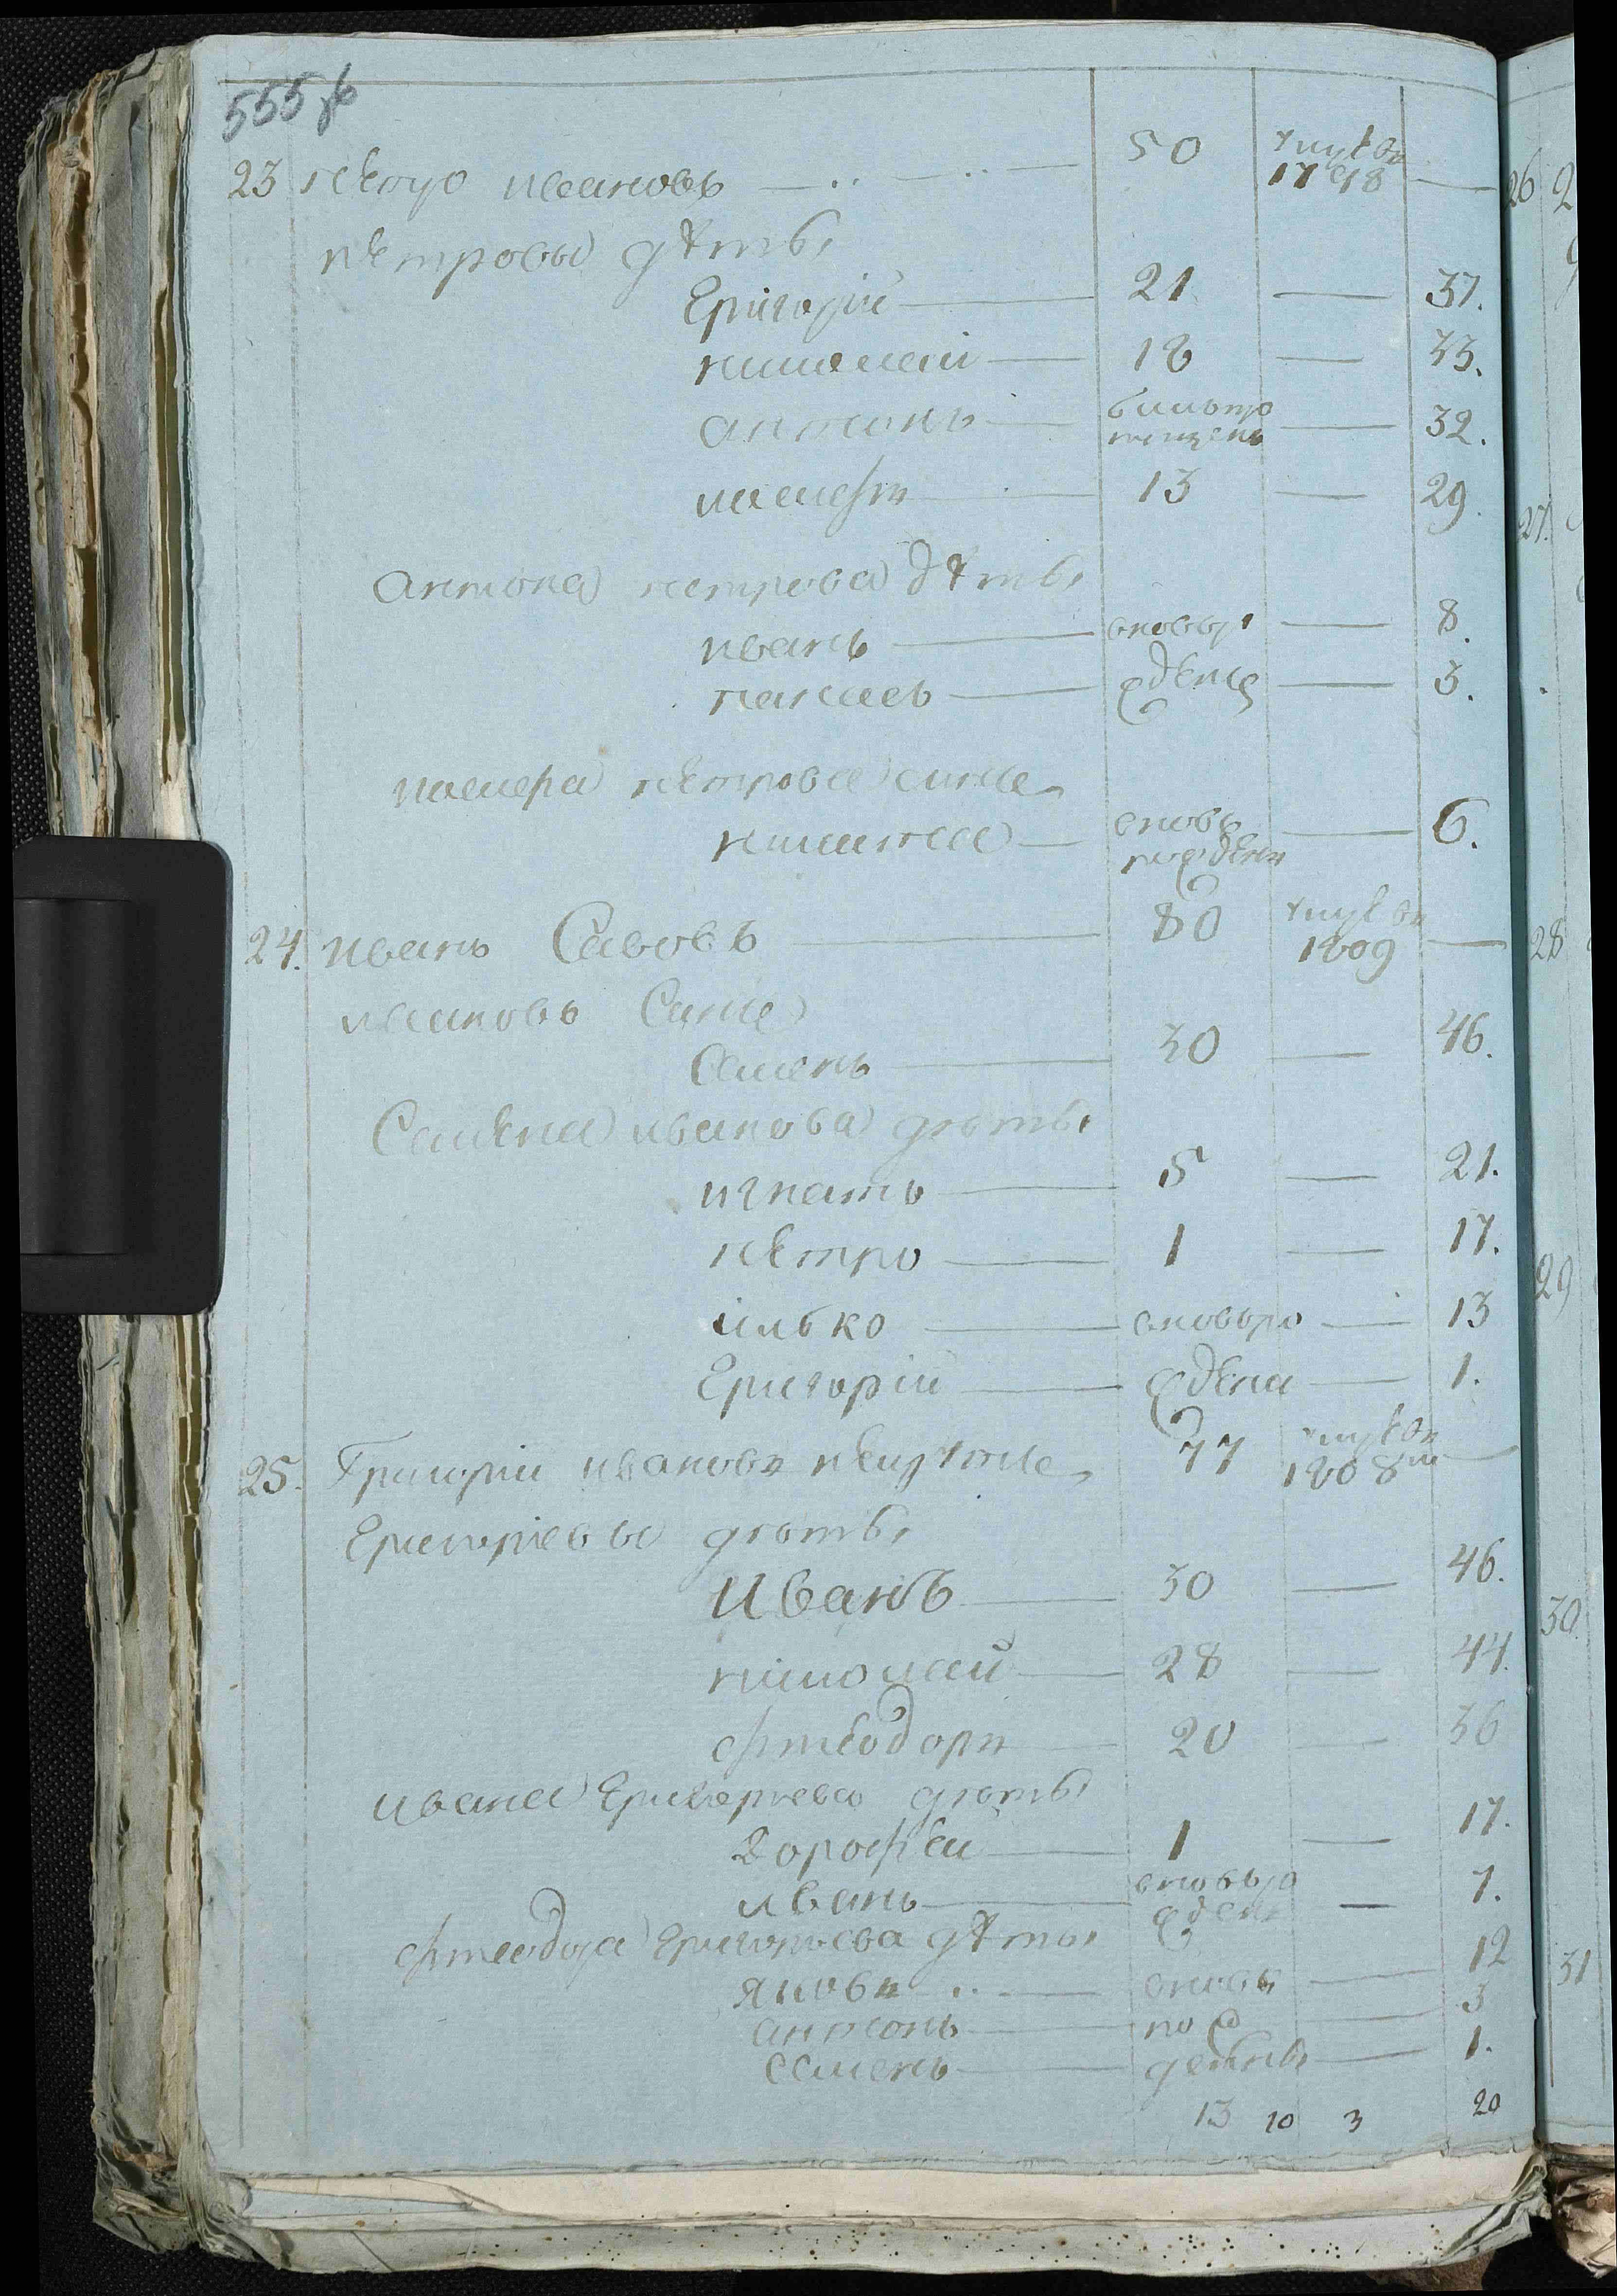 555 об
23 петро ивановъ 50 умре въ 1798
петровы дѣты
Григорій 21 37.
николай 18 33.
антонъ былъ про пущенъ 32.
13 29
антона петрова дѣты
иванъ вновь р 8.
ождены 3.
петрова сынъ
никита вновь рожденъ 6.
24. иванъ Савовъ 80 умре въ 1809
ивановъ Сынъ
Семенъ 30 46.
Семена иванова дѣты
игнатъ 5 21.
петро 1 17.
илько вновь ро 13
Григорій ждены 1.
25. Григорій ивановъ 77 умре въ 1808м
Григорiевы дѣты
Иванъ 30 46.
николай 28 44.
фтеодоръ 20 36
ивана Григорьева дѣты
Дорофей 1 17.
иванъ вновь ро жденъ 7.
фтеодора Григорьева дѣты
яковъ вновь 12
антонъ рож 3
семенъ дены 1.
13 10 3 20
26
27.
28
29
30
31